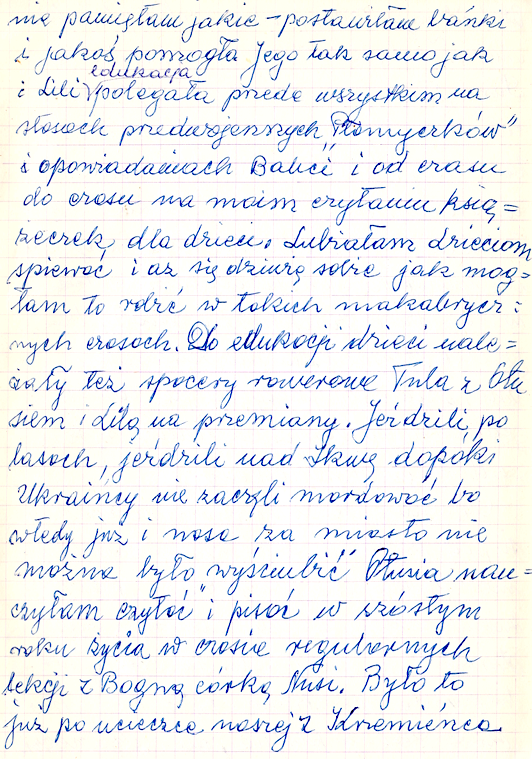 nie pamiętam jakie – postawiłam bańki
i jakoś pomogło. Jego tak samo jak
i Lili edukacja polegała przede wszystkim na
stosach przedwojennych „Płomyczków”
i opowiadaniach Babci i od czasu
do czasu na moim czytaniu ksią=
żeczek dla dzieci. Lubiałam dzieciom
śpiewać i aż się dziwię sobie jak mog=
łam to robić w takich makabrycz=
nych czasach. Do edukacji dzieci nale=
żały też spacery rowerowe Tula z Otu
siem i Lilą na przemiany. Jeździli po
lasach, jeździli nad Ikwę dopóki
Ukraińcy nie zaczęli mordować bo
wtedy już i nosa za miasto nie
można było wyściubić. Otusia nau=
czyłam czytać i pisać w szóstym
roku życia w czasie regularnych
lekcji z Bogną córką Nusi. Było to
już po ucieczce naszej z Krzemieńca